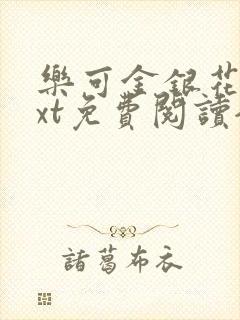 樂可金銀花
xt免費閱讀
諸葛布衣